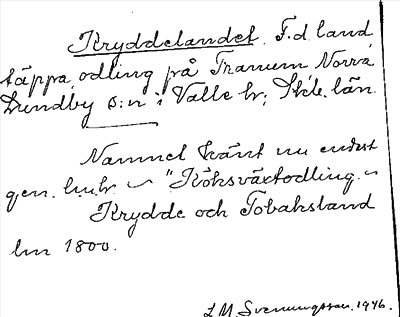 Kryddelandet. F.d. land
täppa, odling på Tranum Norra
Lundby s:n i Valle hr; Skb. län.
Namnet känt nu endast
gen. lmhr. ~ "Köksväxtodling. ~
Krydde och Tobaksland
lm 1800.
L M. Svenungsson. 1946.